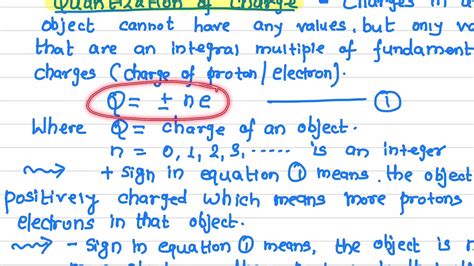 Quantization of charge - Charges in a
object cannot have any values, but only v
that are an integral multiple of fundament
charges (charge of proton/electron).
Q = ± ne ①
Where Q = charge of an object.
n = 0, 1, 2, 3, ..... is an integer
+ sign in equation ① means. the object
positively charged which means more protons
electrons in that object.
- sign in equation ① means, the object is n